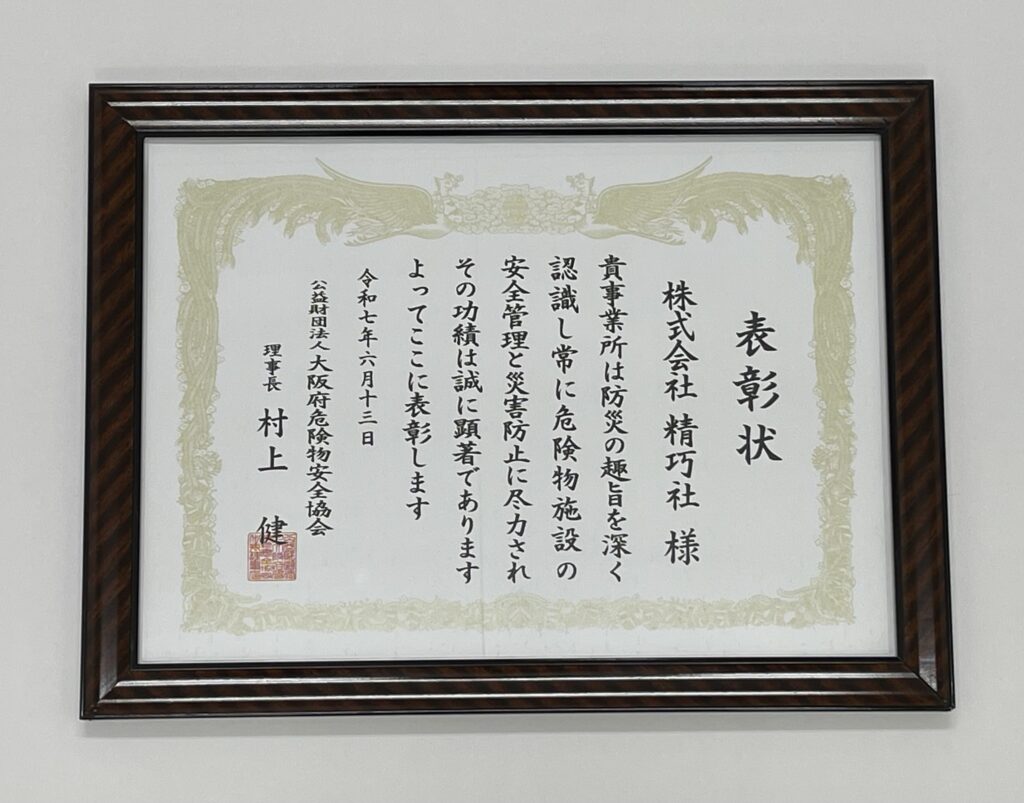 表彰状
株式会社 精巧社 様
貴事業所は防災の趣旨を深く
認識し常に危険物施設の
安全管理と災害防止に尽力され
その功績は誠に顕著であります
よってここに表彰します
令和七年六月十三日
公益財団法人 大阪府危険物安全協会
理事長 村上 健